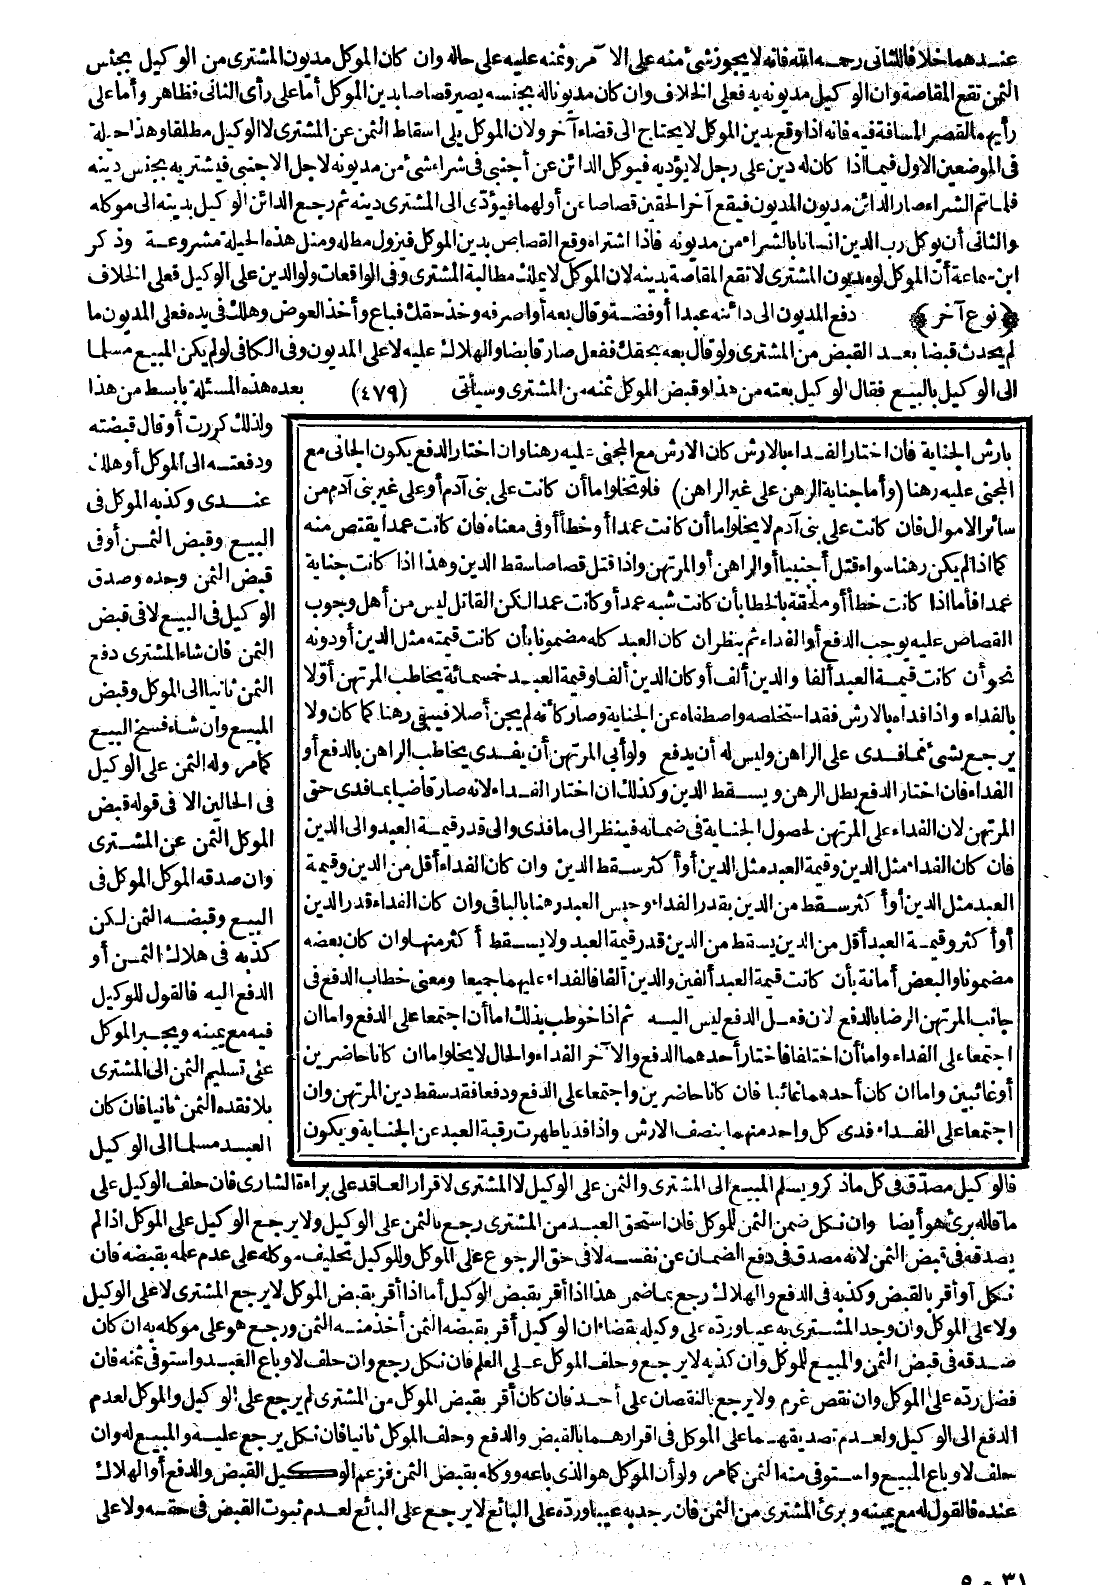 عندهما خلافا للثانى رحمه الله فانه لا يجوز شئ منه على الآمر وثمنه عليه على حاله وان كان الموكل مديون المشترى من الوكيل بجنس
الثمن تقع المقاصة وان الوكيل مديونه به فعلى الخلاف وان كان مديوناله بجنسه يصير قصاصا بدين الموكل أما على رأى الثانى فظاهر وأما على
رأيهما لقصر المسافة فيه فانه اذا وقع بدين الموكل لا يحتاج الى قضاء آخر ولان الموكل يلى اسقاط الثمن عن المشترى لا الوكيل مطلقا وهذا حيلة
فى الموضعين الاول فيما اذا كان له دين على رجل لا يؤديه فيوكل الدائن عن أجنبى فى شراء شئ من مديونه لاجل الاجنبى فيشتريه بجنس دينه
فلما تم الشراء صار الدائن مديون المديون فيقع آخر الحقين قصاصا عن أولهما فيؤدى الى المشترى دينه ثم رجع الدائن الوكيل بدينه الى موكله
والثانى أن يوكل رب الدين انسانا بالشراء من مديونه فاذا اشتراه وقع القصاص بدين الموكل فيزول مطله ومثل هذه الحيلة مشروعة وذكر
ابن سماعة أن الموكل لو مديون المشترى لا تقع المقاصة بدينه لان الموكل لا يملك مطالبة المشترى وفى الواقعات ولو الدين على الوكيل فعلى الخلاف
﴿نوع آخر﴾ دفع المديون الى دائنه عبدا أو فضة وقال بعه أو اصرفه وخذ حقك فباع وأخذ العوض وهلك فى يده فعلى المديون ما
لم يحدث قبضا بعد القبض من المشترى ولو قال بعه بحقك ففعل صار قابضا والهلاك عليه لا على المديون وفى الكافى لو لم يكن المبيع مسلما
الى الوكيل بالبيع فقال الوكيل بعته من هذا وقبض الموكل ثمنه من المشترى وسيأتى (٤٧٩) بعده هذه المسئلة بابسط من هذا
ولذلك كررت أو قال قبضته
ودفعته الى الموكل أو هلك
عندى وكذبه الموكل فى
البيع وقبض الثمن أو فى
قبض الثمن وحده وصدق
الوكيل فى البيع لا فى قبض
الثمن فان شاء المشترى دفع
الثمن ثانيا الى الموكل وقبض
المبيع وان شاء فسخ البيع
كما مر وله الثمن على الوكيل
فى الحالين الا فى قوله قبض
الموكل الثمن عن المشترى
وان صدقه الموكل الموكل فى
البيع وقبضه الثمن لكن
كذبه فى هلاك الثمن أو
الدفع اليه فالقول للوكيل
فيه مع يمينه ويجبر الموكل
على تسليم الثمن الى المشترى
بلا نقده الثمن ثانيا فان كان
العبد مسلما الى الوكيل
بارش الجناية فان اختار الفداء بالارش كان الارش مع المجنى عليه رهنا وان اختار الدفع يكون الجانى مع
المجنى عليه رهنا (وأما جناية الرهن على غير الراهن) فلو تخلو اما أن كانت على بنى آدم أو على غير بنى آدم من
سائر الاموال فان كانت على بنى آدم لا يخلو اما أن كانت عمدا أو خطأ أو فى معناه فان كانت عمدا يقتص منه
كما اذا لم يكن رهنا سواء قتل أجنبيا أو الراهن أو المرتهن واذا قتل قصاصا سقط الدين وهذا اذا كانت جناية
عمدا فأما اذا كانت خطأ أو ملحقة بالخطا بأن كانت شبه عمد أو كانت عمدا لكن القاتل ليس من أهل وجوب
القصاص عليه يوجب الدفع أو الفداء ثم ينظر ان كان العبد كله مضمونا بأن كانت قيمته مثل الدين أو دونه
نحو أن كانت قيمة العبد ألفا والدين ألف أو كان الدين ألفا وقيمة العبد خمسمائة يخاطب المرتهن أولا
بالفداء واذا فداه بالارش فقد استخلصه واصطفاه عن الجناية وصار كأنه لم يجن أصلا فيبقى رهنا كما كان ولا
يرجع بشئ مما فدى على الراهن وليس له أن يدفع ولو أبى المرتهن أن يفدى يخاطب الراهن بالدفع أو
الفداء فان اختار الدفع بطل الرهن ويسقط الدين وكذلك ان اختار الفداء لانه صار قاضيا بما فدى حق
المرتهن لان الفداء على المرتهن لحصول الجناية فى ضمانه فينظر الى ما فدى والى قدر قيمة العبد والى الدين
فان كان الفداء مثل الدين وقيمة العبد مثل الدين أو أكثر سقط الدين وان كان الفداء أقل من الدين وقيمة
العبد مثل الدين أو أكثر سقط من الدين بقدر الفداء وحبس العبد رهنا بالباقى وان كان الفداء قدر الدين
أو أكثر وقيمة العبد أقل من الدين يسقط من الدين قدر قيمة العبد ولا يسقط أكثر منها وان كان بعضه
مضمونا والبعض أمانة بأن كانت قيمة العبد ألفين والدين ألفا فالفداء عليهما جميعا ومعنى خطاب الدفع فى
جانب المرتهن الرضا بالدفع لان فعل الدفع ليس اليه ثم اذا خوطب بذلك اما أن اجتمعا على الدفع واما ان
اجتمعا على الفداء واما أن اختلفا فاختار أحدهما الدفع والآخر الفداء والحال لا يخلو اما ان كانا حاضرين
أو غائبين واما ان كان أحدهما غائبا فان كانا حاضرين واجتمعا على الدفع ودفعا فقد سقط دين المرتهن وان
اجتمعا على الفداء فدى كل واحد منهما بنصف الارش واذا فديا طهرت رقبة العبد عن الجناية ويكون
فالوكيل مصدق فى كل ما ذكر ويسلم المبيع الى المشترى والثمن على الوكيل لا المشترى لاقرار العاقد على براءة الشارى فان حلف الوكيل على
ما قاله برئ هو أيضا وان نكل ضمن الثمن للموكل فان استحق العبد من المشترى رجع بالثمن على الوكيل ولا يرجع الوكيل على الموكل اذا لم
يصدقه فى قبض الثمن لانه مصدق فى دفع الضمان عن نفسه لا فى حق الرجوع على الموكل وللوكيل تحليف موكله على عدم علمه بقبضه فان
نكل أو أقر بالقبض وكذبه فى الدفع والهلاك رجع بما ضمن هذا اذا أقر بقبض الوكيل أما اذا أقر بقبض الموكل لا يرجع المشترى لا على الوكيل
ولا على الموكل وان وجد المشترى به عيبا ورده على وكيله بقضاء ان الوكيل أقر بقبضه الثمن أخذ منه الثمن ورجع هو على موكله به ان كان
صدقه فى قبض الثمن والمبيع للموكل وان كذبه لا يرجع وحلف الموكل على العلم فان نكل رجع وان حلف لا وباع العبد واستوفى ثمنه فان
فضل رده على الموكل وان نقص غرم ولا يرجع بالنقصان على أحد فان كان أقر بقبض الموكل من المشترى لم يرجع على الوكيل والموكل لعدم
الدفع الى الوكيل ولعدم تصديقهما على الموكل فى اقرارهما بالقبض والدفع وحلف الموكل ثانيا فان نكل يرجع عليه والمبيع له وان
حلف لا وباع المبيع واستوفى منه الثمن كما مر ولو أن الموكل هو الذى باعه ووكله بقبض الثمن فزعم الوكيل القبض والدفع أو الهلاك
عنده فالقول له مع يمينه وبرئ المشترى من الثمن فان وجد به عيبا ورده على البائع لا يرجع على البائع لعدم ثبوت القبض فى حقه ولا على